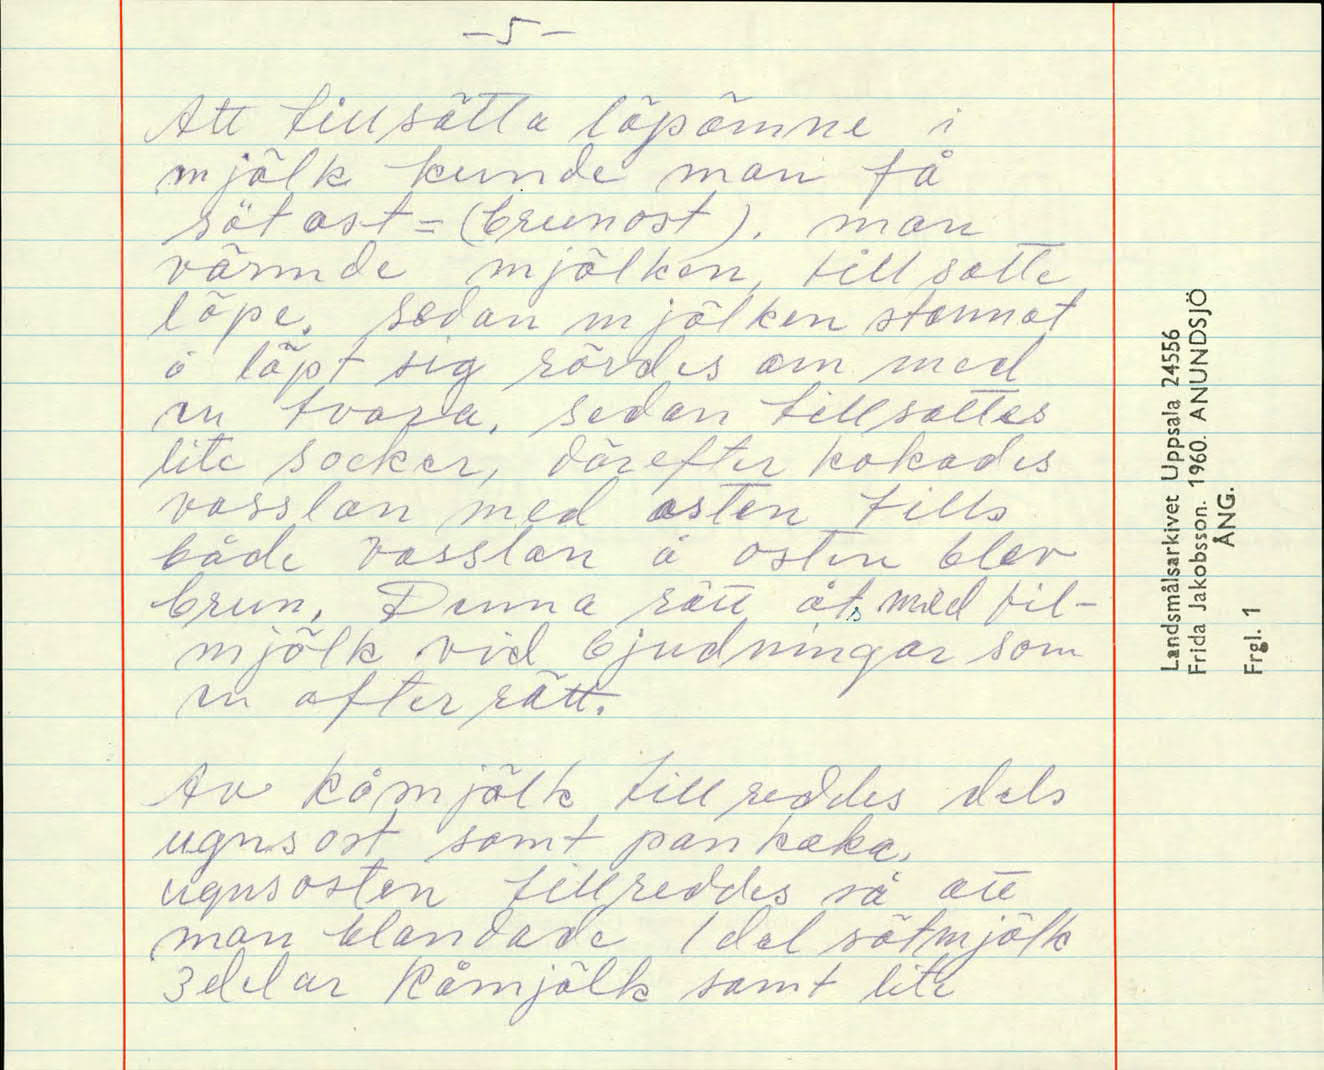 -5-
Att tillsätta löpämne i
mjölk kunde man få
söt ost = (brunost). man
värmde mjölken, tillsatte
löpe. sedan mjölken stannat
å löpt sig rördes om med
en tvara. sedan tillsattes
lite socker, därefter kokades
vasslan med osten tills
både vasslan å osten blev
brun. Denna rätt åts med fil-
mjölk vid bjudningar som
en efter rätt.
Av Råmjölk tillreddes dels
ugnsost samt pankaka.
ugnsosten tillreddes så att
man blandade 1 del sötmjölk
3 delar Råmjölk samt lite
Landsmålsarkivet Uppsala 24556
Frida Jakobsson. 1960. ANUNDSJÖ
ÅNG.
Frgl. 1